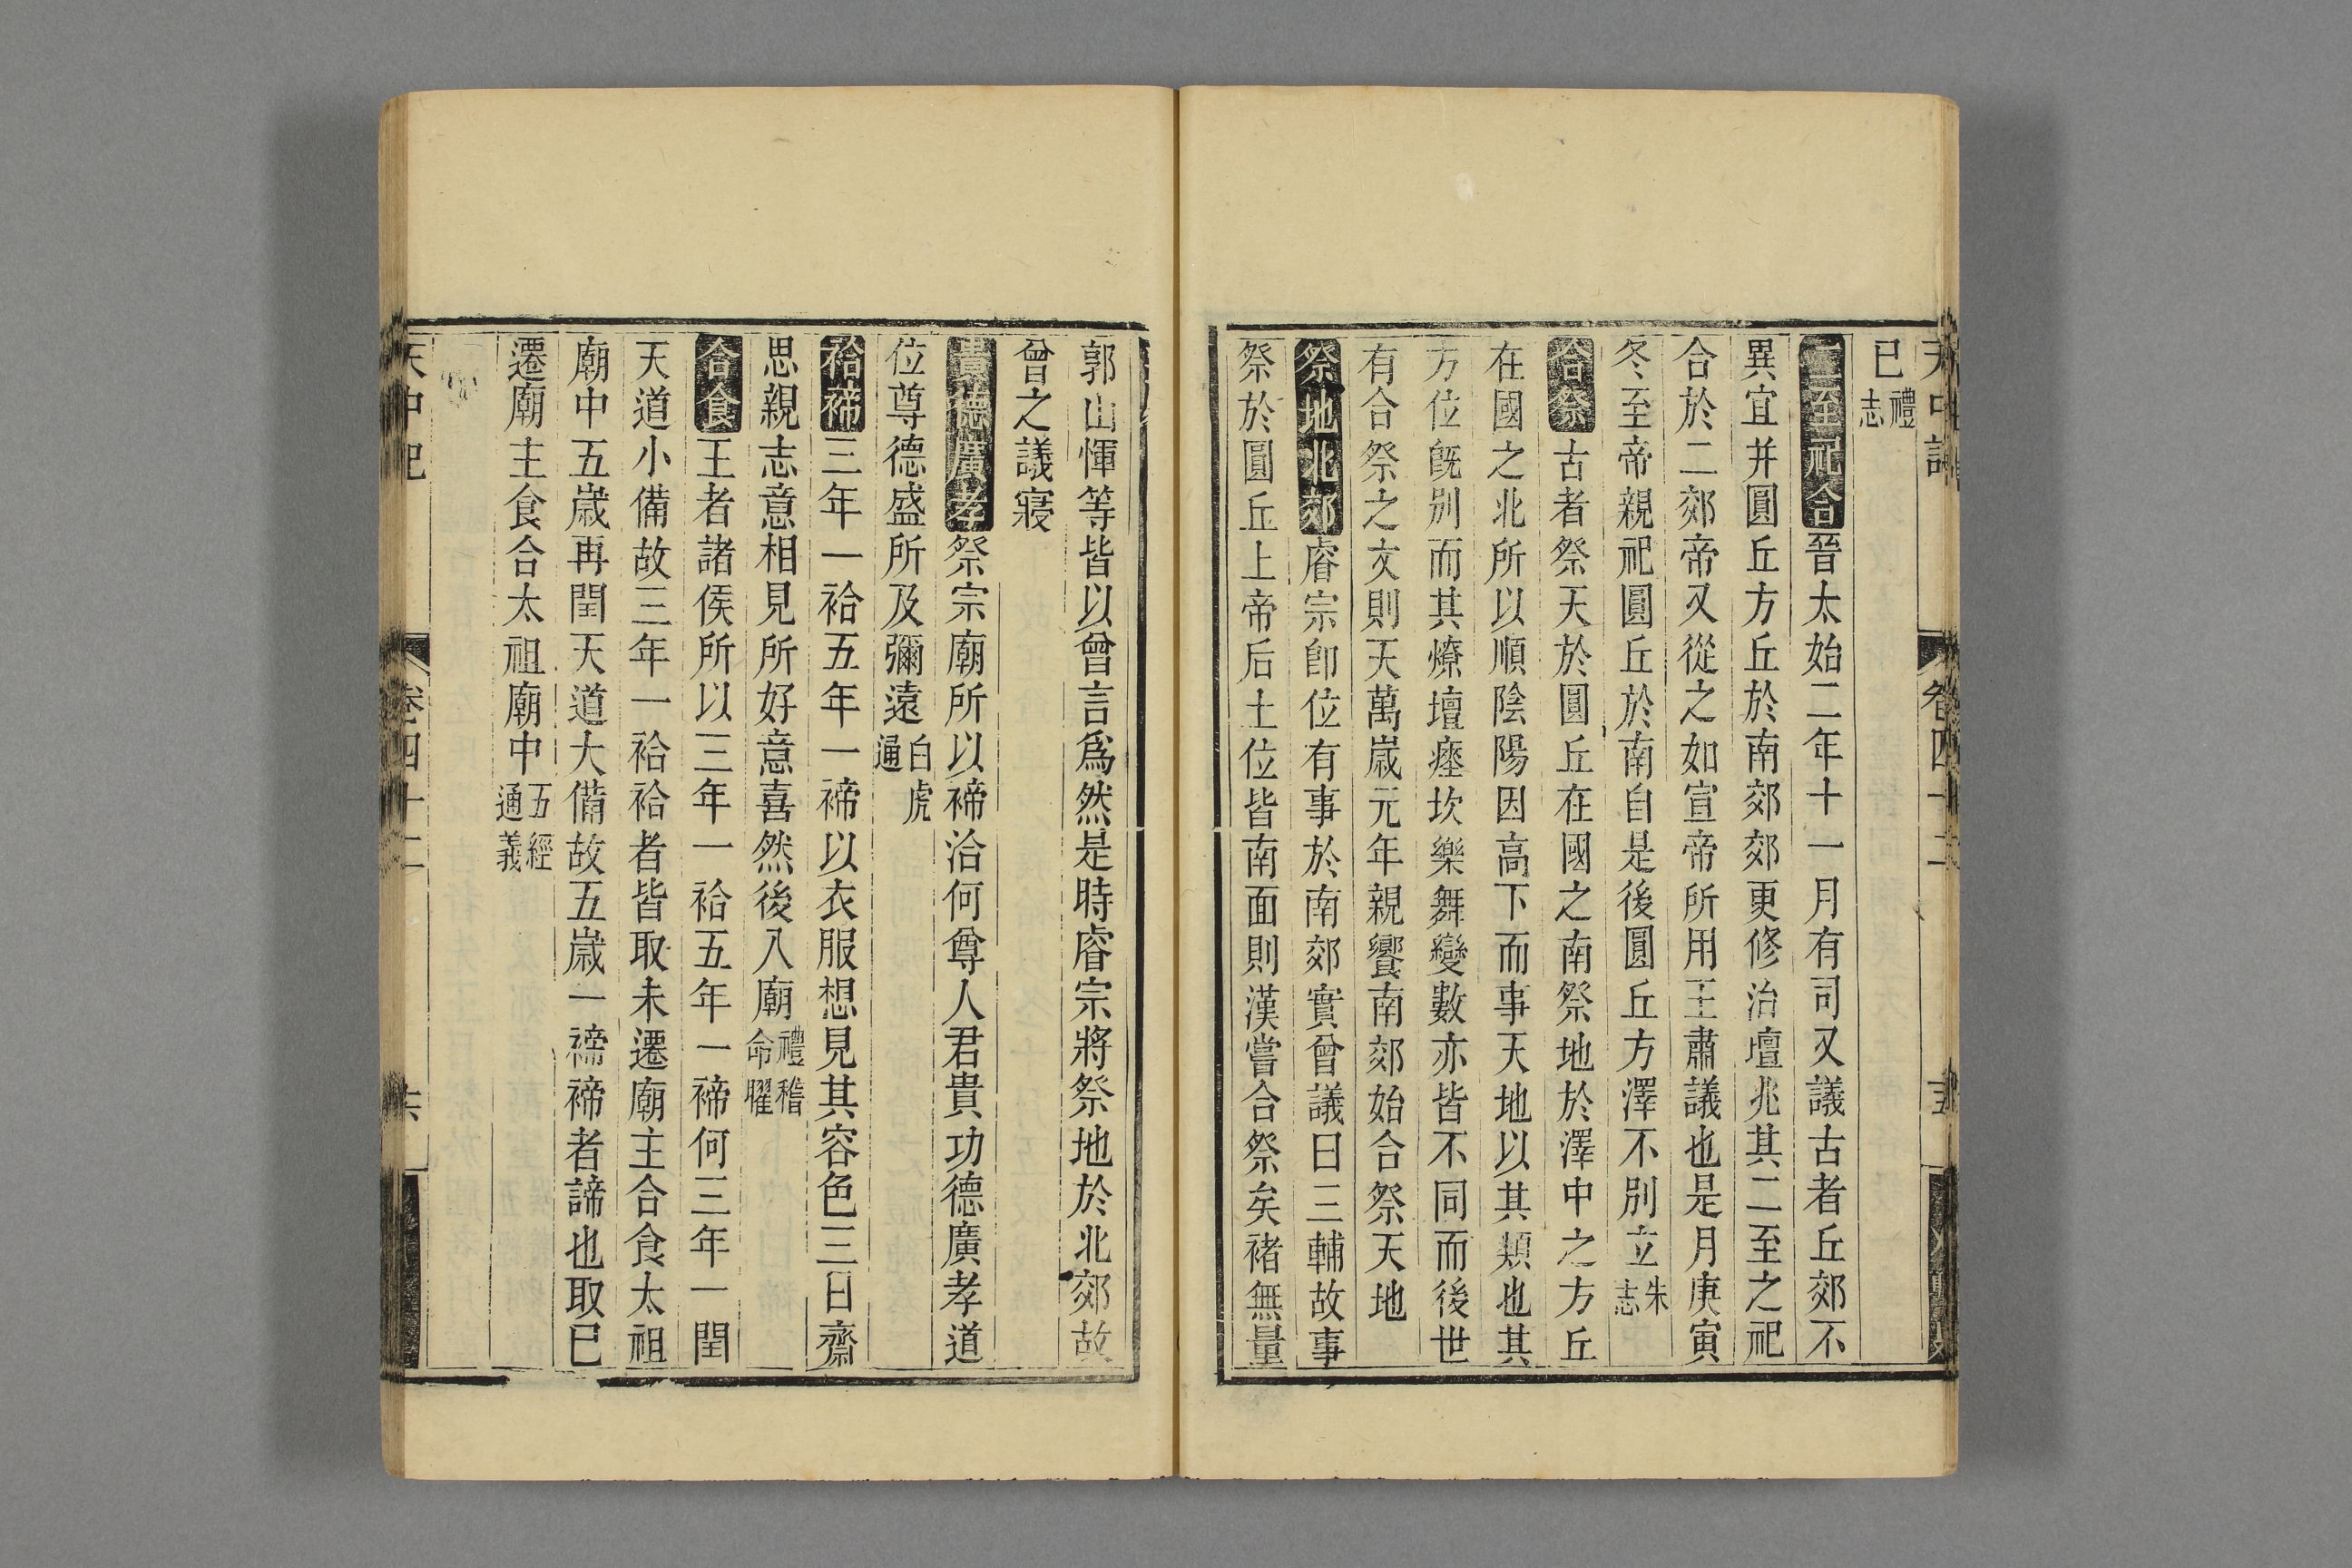 天中記 卷四十二 五
已禮志
二至祀合晉太始二年十一月有司又議古者丘郊不
異宜并圓丘方丘於南郊郊更修治壇兆其二至之祀
合於二郊帝又從之如宣帝所用王肅議也是月庚寅
冬至帝親祀圓丘於南郊自是後圓丘方澤不別立朱志
合祭古者祭天於圓丘在國之南祭地於澤中之方丘
在國之北所以順陰陽因高下而事天地以其類也其
方位旣別而其燎壇瘞坎樂舞變數亦皆不同而後世
有合祭之文則天萬歲元年親饗南郊始合祭天地
祭地北郊睿宗卽位有事於南郊實曾議曰三輔故事
祭於圓丘上帝后土位皆南面則漢嘗合祭矣褚無量
郭山惲等皆以曾言爲然是時睿宗將祭地於北郊故
曾之議寢
貴德廣孝祭宗廟所以禘洽何尊人君貴功德廣孝道
位尊德盛所及彌遠白虎通
祫禘三年一祫五年一禘以衣服想見其容色三日齋
思親志意相見所好意喜然後入廟禮稽命曜
合食王者諸侯所以三年一祫五年一禘何三年一閏
天道小備故三年一祫祫者皆取未遷廟主合食太祖
廟中五歲再閏天道大備故五歲一禘禘者諦也取已
遷廟主食合太祖廟中五經通義
天中記 卷四十二 六